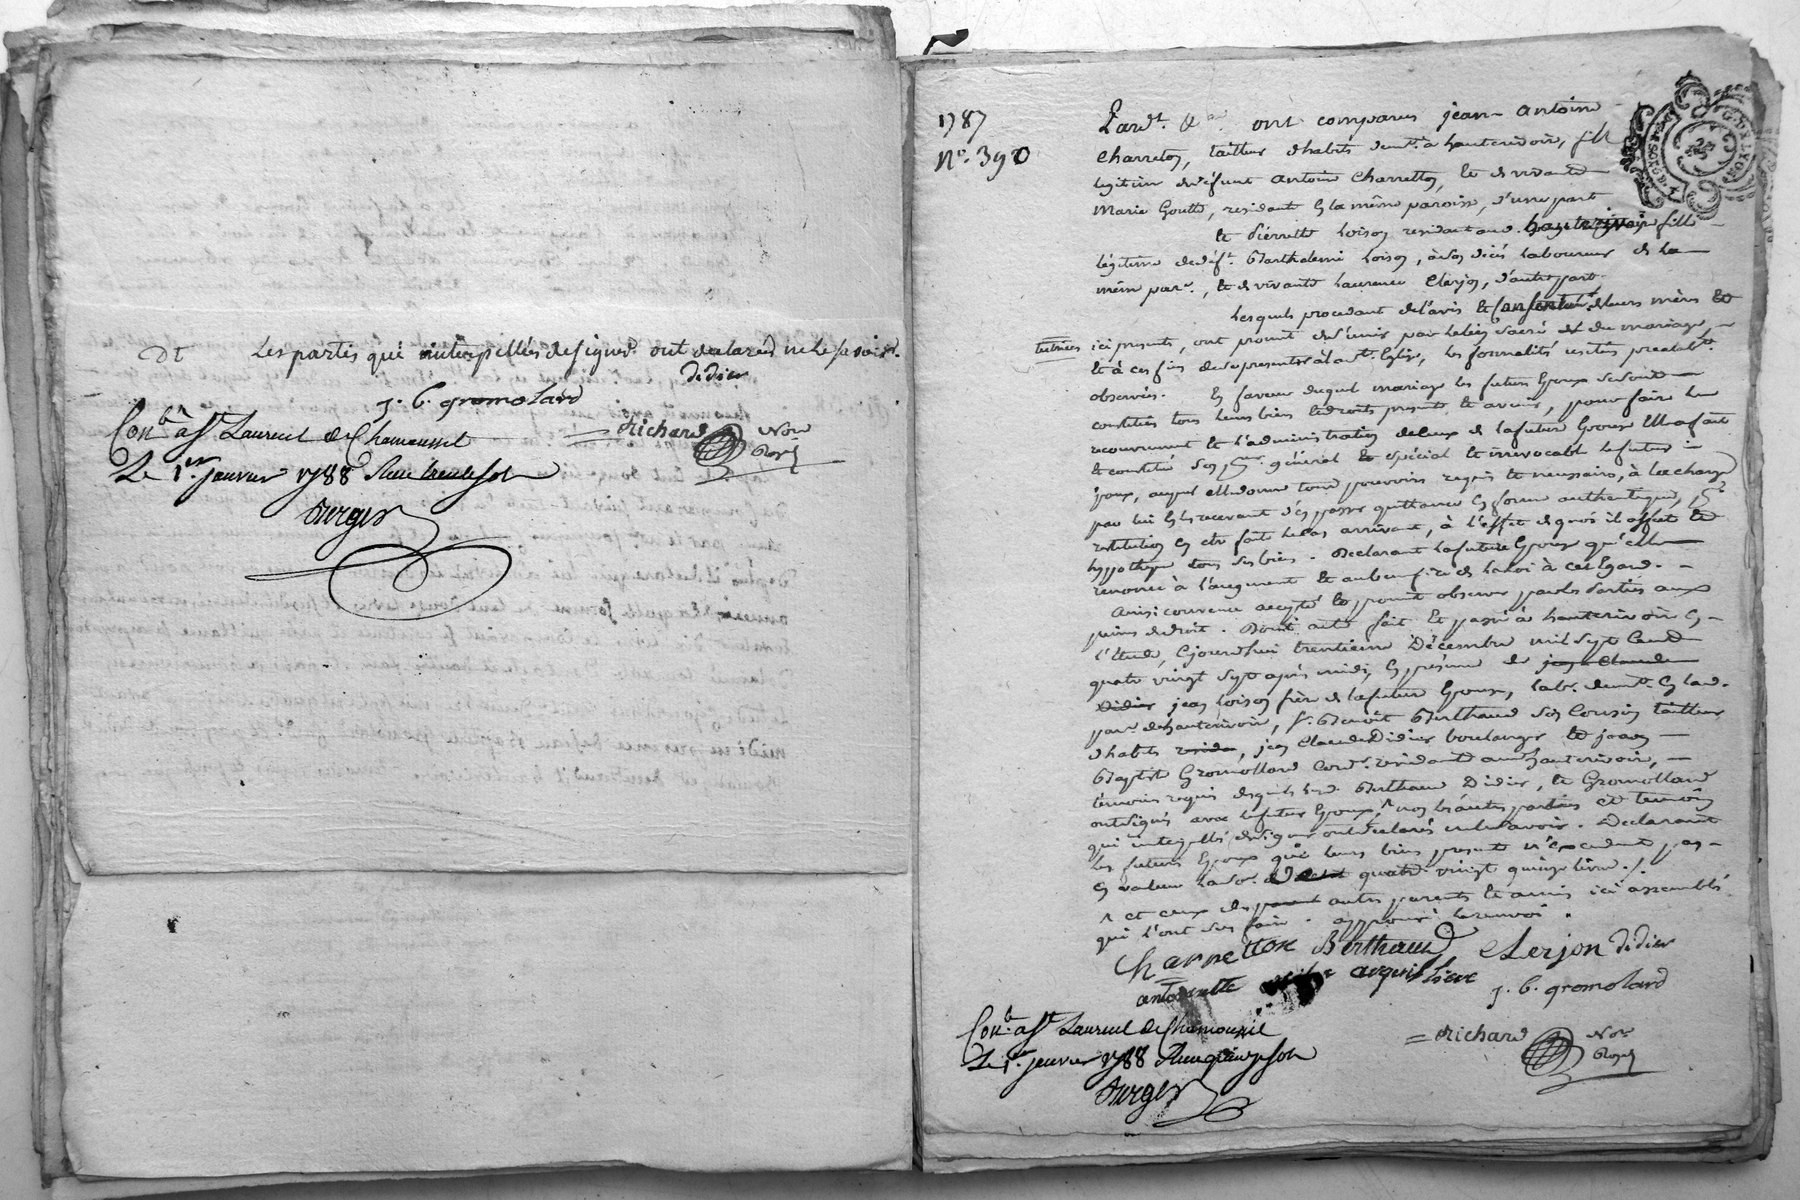 Dt les parties qui interpellés de signer ont declarés ne le savoir.
didier
J. B. gromolard
=Richard Nore
Royal
Con.le à St Laurent de Chamousset
Le 1er. janvier 1788 Reçu trente sols
Durger
1787
N°. 390
Pardt. &a ont comparus jean-antoine
Charreton, tailleur d'habits demt. à hauterivoire, fils
legitime de défunt antoine Charretton, et de vivante
Marie Goutte, residante en la même paroisse, d'une part
et pierrette loison residant aud. hauterivoire fille
légitime de déft. Barthelemi loison, à son décés laboureur de la
même parse., et de vivante laurence Clerjon, d'autre part.
lesquels procedant de l'avis et consentemt. de leurs mères et
tutrices ici presents, ont promit de s'unir par le lien sacré du mariage,
et à ces fins de se presenter à la ste. Eglise, les formalités usitées préalablt.
observées. En faveur duquel mariage les futurs Epoux se sont
constitués tous leurs biens et droits presents et avenir, pour faire le
recouvrement et l'administration de ceux de la future Epouse elle a fait
et constitué son procur. général et spécial et irrévocable le futur
Epoux, auquel elle donne tout pouvoirs requis et necessaire, à la charge
par lui en les recevant d'en passer quittance en forme authentique, pr.
restitution en etre faite le cas arrivant, à l'effet de quoi il affecte et
hypotheque tous ses biens. Declarant la future Epouse qu'elle
renonce à l'augment et au benefice de la loi à cet Egard.
Ainsi convenu accepté et promit observer par les parties aux
peines de droit. Dont acte fait et passé à hauterivoire En
l'étude, Cejourd'hui trentieme Décembre mil sept Cent
quatre vingt sept après midi, En présence de jean Claude
Didier jean loison frère de la future Epouse, labr. demt. En lad.
parse. de hauterivoire, sr. Benoit Berthaud son Cousin tailleur
d'habits, jean Claude Didier boulanger et jean
Baptiste Gromollard Cordr. residant aud. hauterivoire,
témoins requis desquels led. Berthaud Didier, et Gromollard
ont signés avec le futur Epoux, ^ non les autres parties et temoins
qui interpellés de signer ont declarés ne le savoir. Declarant
les futurs Epoux que leurs biens presents n'excedent pas
En valeur la so. de quatre vingt quinze livres./.
^ et ceux des autres parents et amis ici assemblés
qui l'ont sus faire. approuvé le renvoi.
Charretton Berthaud Clerjon didier
antoinette arquilliere
J. B. gromolard
=Richard Nore
Royal
Con.le à St Laurent de Chamousset
Le 1er. janvier 1788 Reçu quinze sols
Durger